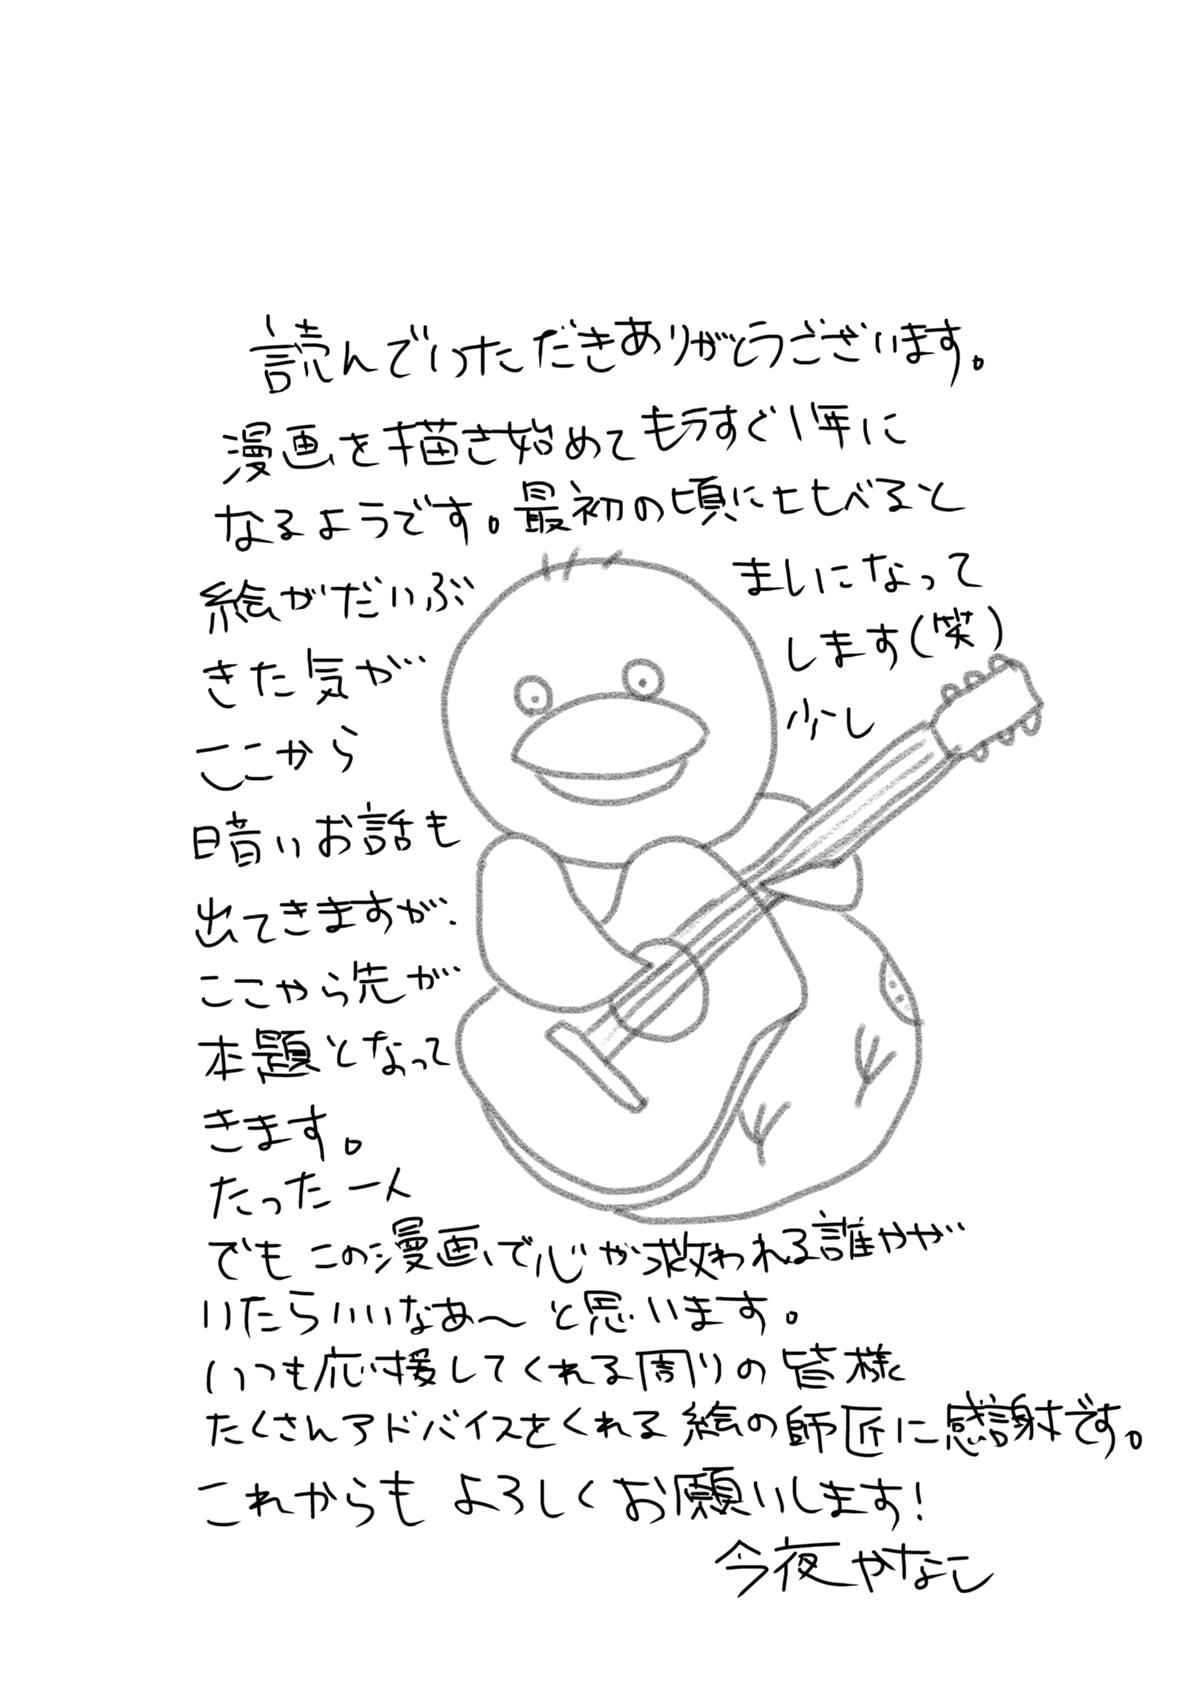 読んでいただきありがとうございます。
漫画を描き始めてもうすぐ1年に
なるようです。最初の頃に比べると
絵がだいぶ ましになって
きた気が します(笑)
ここから 少し
暗いお話も
出てきますが、
ここから先が
本題となって
きます。
たった一人
でもこの漫画で心が救われる誰かが
いたらいいなあ〜と思います。
いつも応援してくれる周りの皆様
たくさんアドバイスをくれる絵の師匠に感謝です。
これからもよろしくお願いします!
今夜やなし